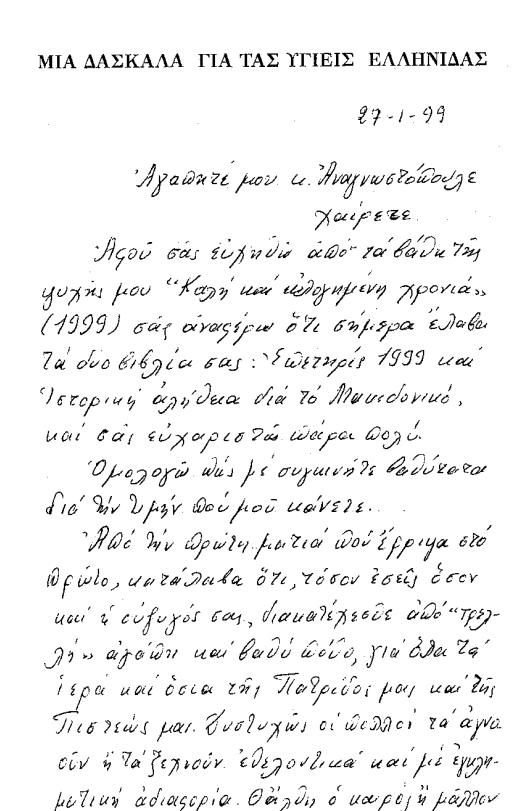 ΜΙΑ ΔΑΣΚΑΛΑ ΓΙΑ ΤΑΣ ΥΓΙΕΙΣ ΕΛΛΗΝΙΔΑΣ
27-1-99
Ἀγαπητέ μου κ. Ἀναγνωστόπουλε
χαίρετε.
Ἀφοῦ σᾶς εὐχηθῶ ἀπό τά βάθη τῆς
ψυχῆς μου "Καλή καί εὐλογημένη χρονιά»
(1999) σᾶς ἀναφέρω ὅτι σήμερα ἔλαβα
τά δυο βιβλία σας: Ἐπετηρίς 1999 καί
Ἱστορική ἀλήθεια διά τό Μακεδονικό,
καί σᾶς εὐχαριστῶ πάρα πολύ.
Ὁμολογῶ πώς μέ συγκινῆτε βαθύτατα
διά τήν τιμήν πού μοῦ κάνετε..
Ἀπό τήν πρώτη ματιά πού ἔρριψα στό
πρῶτο, κατάλαβα ὅτι, τόσον ἐσεῖς ὅσον
καί ἡ σύζυγός σας, διακατέχεσθε ἀπό "τρελ-
λή» ἀγάπη καί βαθύ πόθο, γιά ὅλα τά
ἱερά καί ὅσια τῆς Πατρίδος μας καί τῆς
Πίστεώς μας. Δυστυχῶς οἱ πολλοί τά ἀγνο
οῦν ἤ τά ξεχνοῦν ἐθελοντικά καί μέ ἐγκλη-
ματική ἀδιαφορία. Θἄλθη ὁ καιρός ἤ μᾶλλον